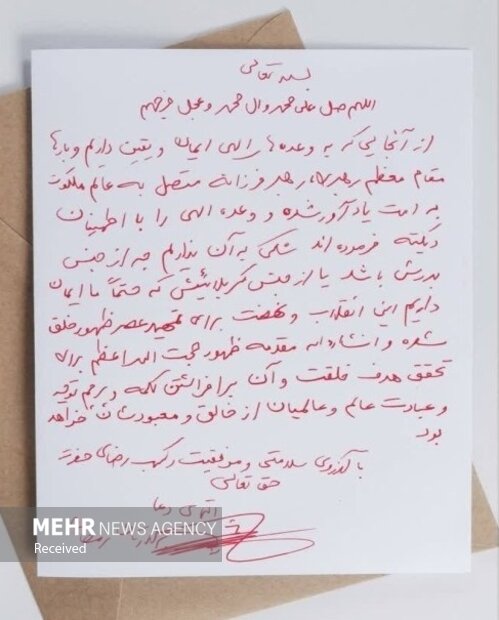 بسمه تعالی
اللهم صل علی محمد و آل محمد و عجل فرجهم
از آنجایی که به وعده های الهی ایمان و یقین داریم و بارها
مقام معظم رهبری، رهبر فرزانه متصل به عالم ملکوت
به امت یادآور شده و وعده الهی را با اطمینان
فرموده اند شکی به آن نداریم چه از جنس
بدرش باشد یا از جنس کربلائیش که حتماً ما ایمان
داریم این انقلاب و نهضت برای تمهید عصر ظهور خلق
شده و انشاء اله مقدمه ظهور حجت الله اعظم برای
تحقق هدف خلقت و آن برافراشتن کلمه و پرچم توحید
و عبادت عالم و عالمیان از خالق و معبودشان خواهد
بود
با آرزوی سلامتی و موفقیت و کسب رضای حضرت
حق تعالی
التماس دعا
MEHR NEWS AGENCY
Received